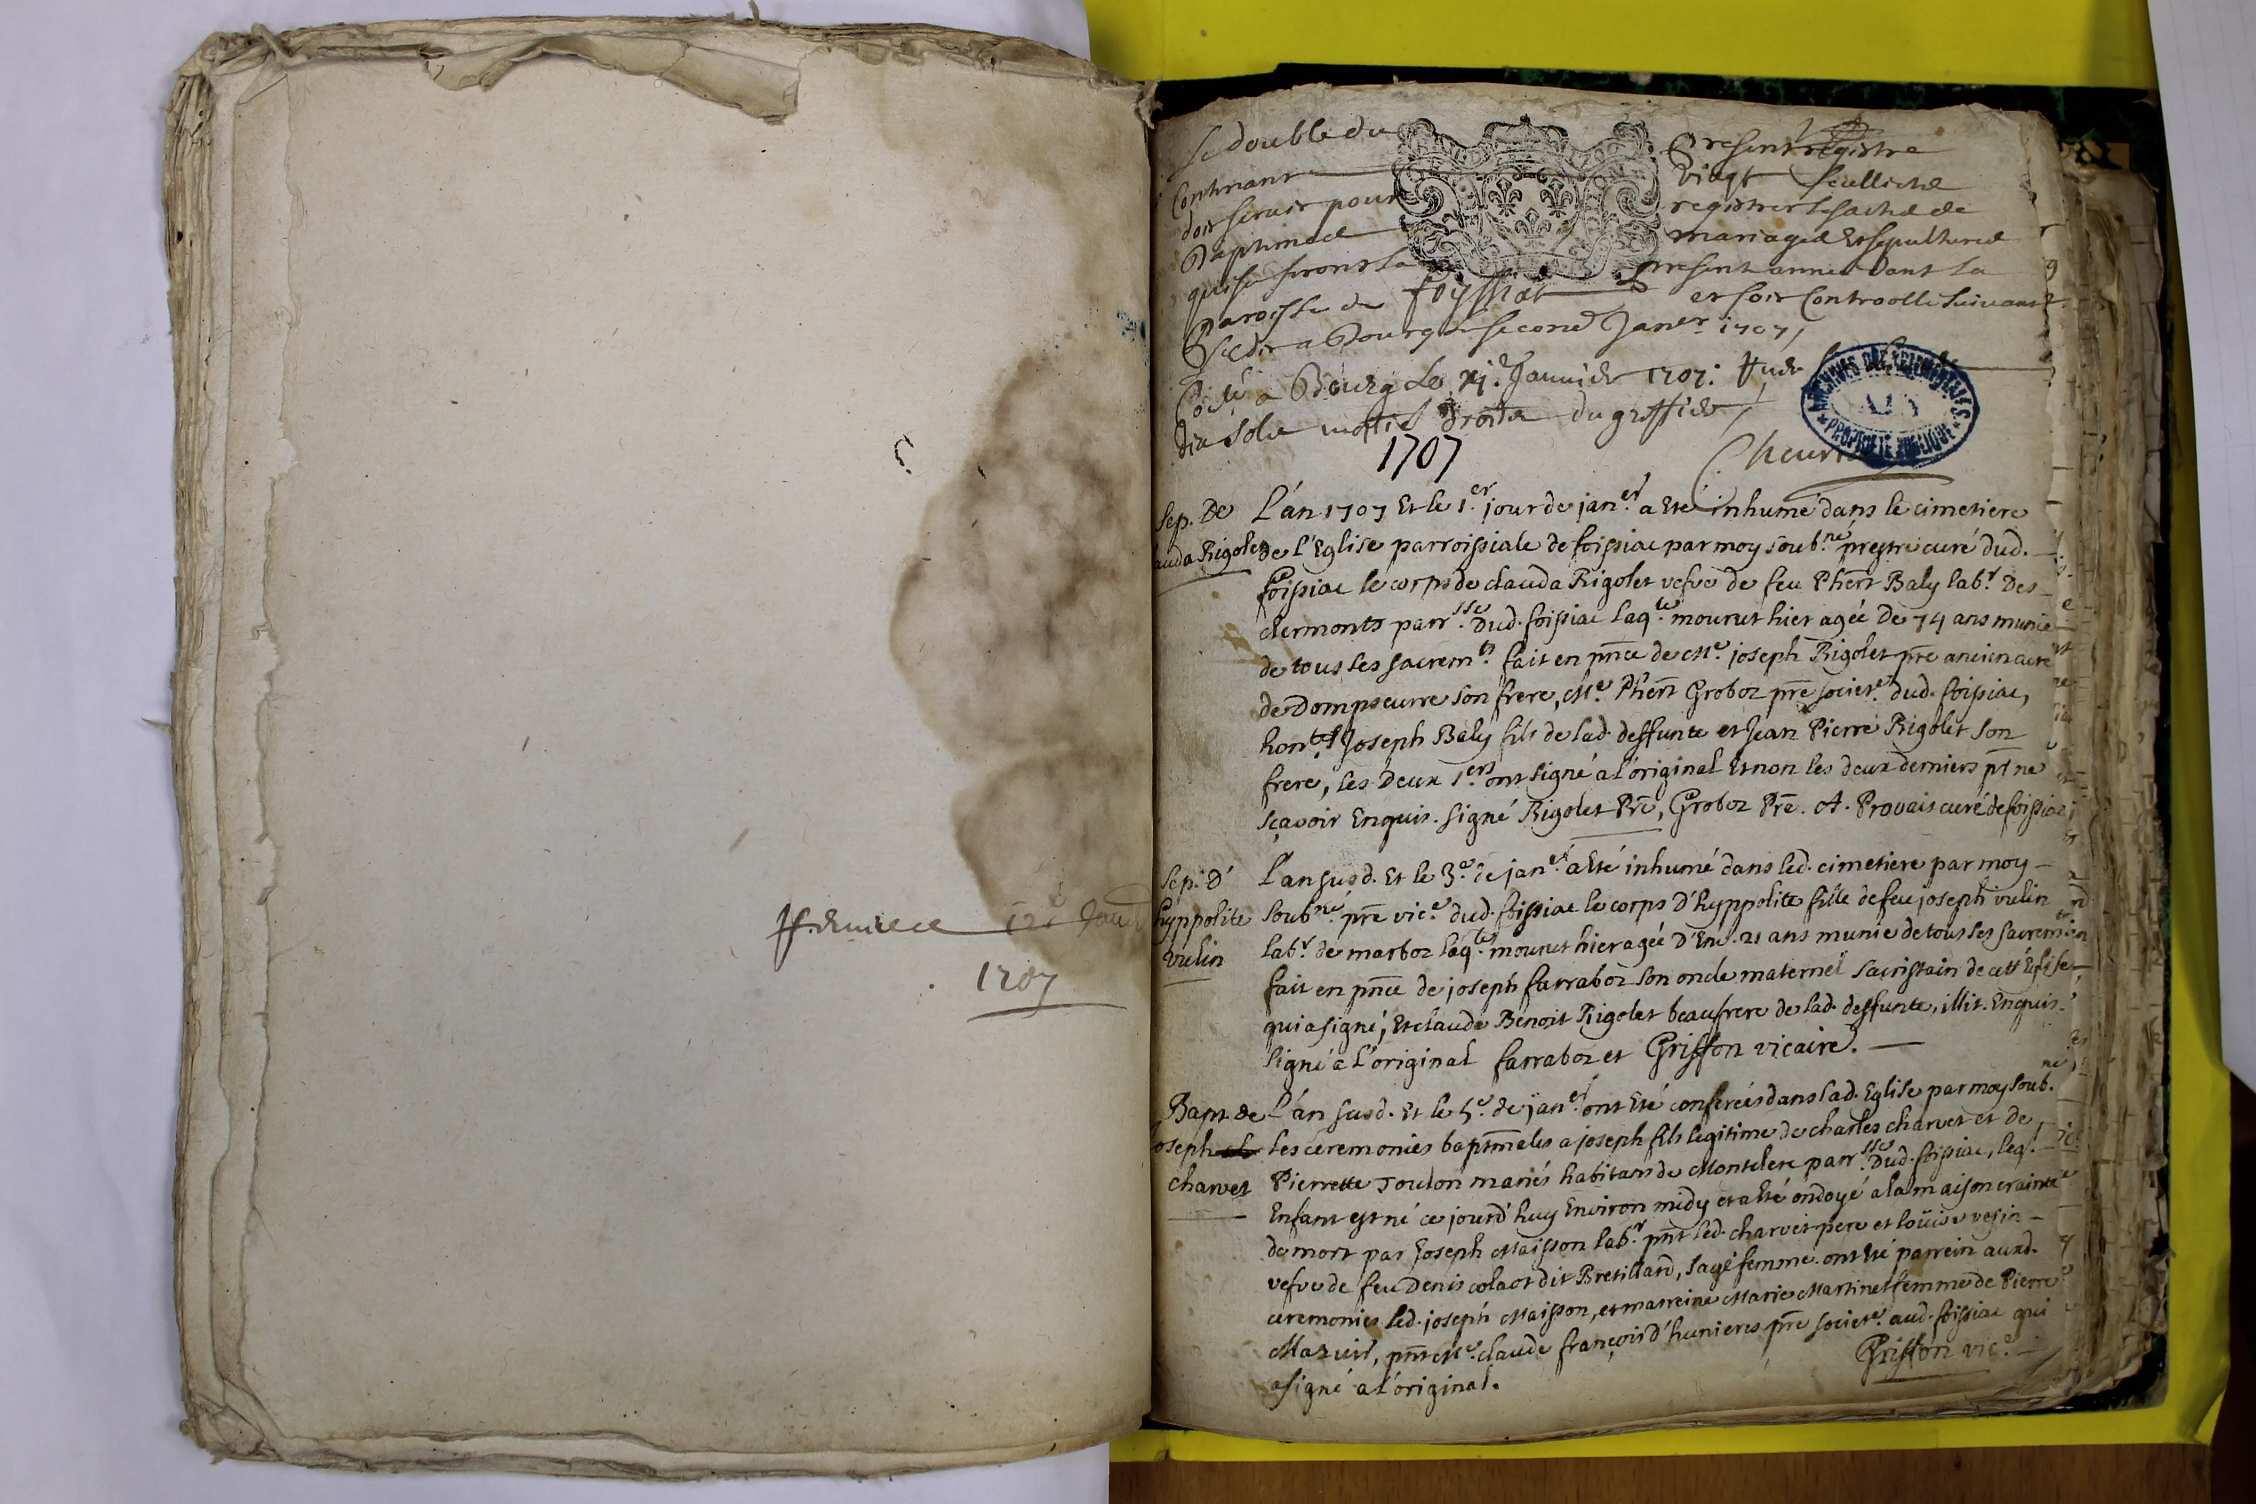 1707
Le double du present registre
Contenant vingt feuillets
doit servir pour registrer les actes de
Baptimes mariages et sepultures
qui se feront la present annee dans la
Paroisse de foyssiat et soit Controolle suivant
a Bourg le second Janer 1707
a Bourg le Janvier 1707.
dix sols droits du greffier
1707
ARCHIVES DEPARTEMENTALES
AIN
PROPRIETE PUBLIQUE
Sep. De
auda Rigolet
L'an 1707 Et le 1.er jour de jan.er a eté inhumé dans le cimetiere
de l'Eglise parroissiale de foissiac par moy soub.né prestre curé dud.
foissiac le corps de clauda Rigolet vefve de feu Phert Baly lab.r Des
clermonts parr.sse Dud. foissiac laq.le mourut hier agée De 74 ans munie
de tous les sacrem.ts fait en pnce de Me. joseph Rigolet pre ancien curé
de Dompseurre son frere, Me. Phert Groboz pre societ.e dud. foissiac,
hon.bles Joseph Baly fils de lad. deffunte et Jean Pierre Rigolet son
frere, les Deux 1.ers ont signé a l'original Et non les deux derniers pr ne
sçavoir Enquis. signé Rigolet Pre, Groboz Pre. A. Provais curé de foissiac
Sep. d'
hyppolite
vulin
L'an susd. Et le 3.e de jan.er a eté inhumé dans led. cimetiere par moy
soub.né pre vic.e dud. foissiac le corps d'hyppolite fille de feu joseph vulin
lab.r de marboz laq.le mourut hier agée d'Env. 21 ans munie de tous les sacremen
fait en pnce de joseph farraboz son oncle maternel sacristain de cett Eglise
qui a signé, Et claude Benoit Rigolet beaufrere de lad. deffunte, illit. Enquis.
signé a l'original farraboz et Griffon vicaire.
Bapt. de
joseph
charvet
L'an susd. Et le 5.e de jan.er ont Eté conferées dans lad. Eglise par moy soub.né
les ceremonies baptmales a joseph fils legitime de charles charvet et de
Pierrette Toulon mariés habitans de Montclere parr.sse Dud. foissiac, leq.
Enfant est né ce jourd'huy Environ midy et a Eté ondoyé a la maison crainte
de mort par Joseph Maisson lab.r pnt led. charvet pere et loüise vesin
vefve de feu Denis colaot dit Bretillard, sage femme. ont Eté parrein auxd.
ceremonies led. joseph Maisson, et marreine Marie Martinet femme de Pierre
Mazuir, pnt Me. claude françois d'hunieres pre societ.e aud. foissiac qui
a signé a l'original.
Griffon vic.e